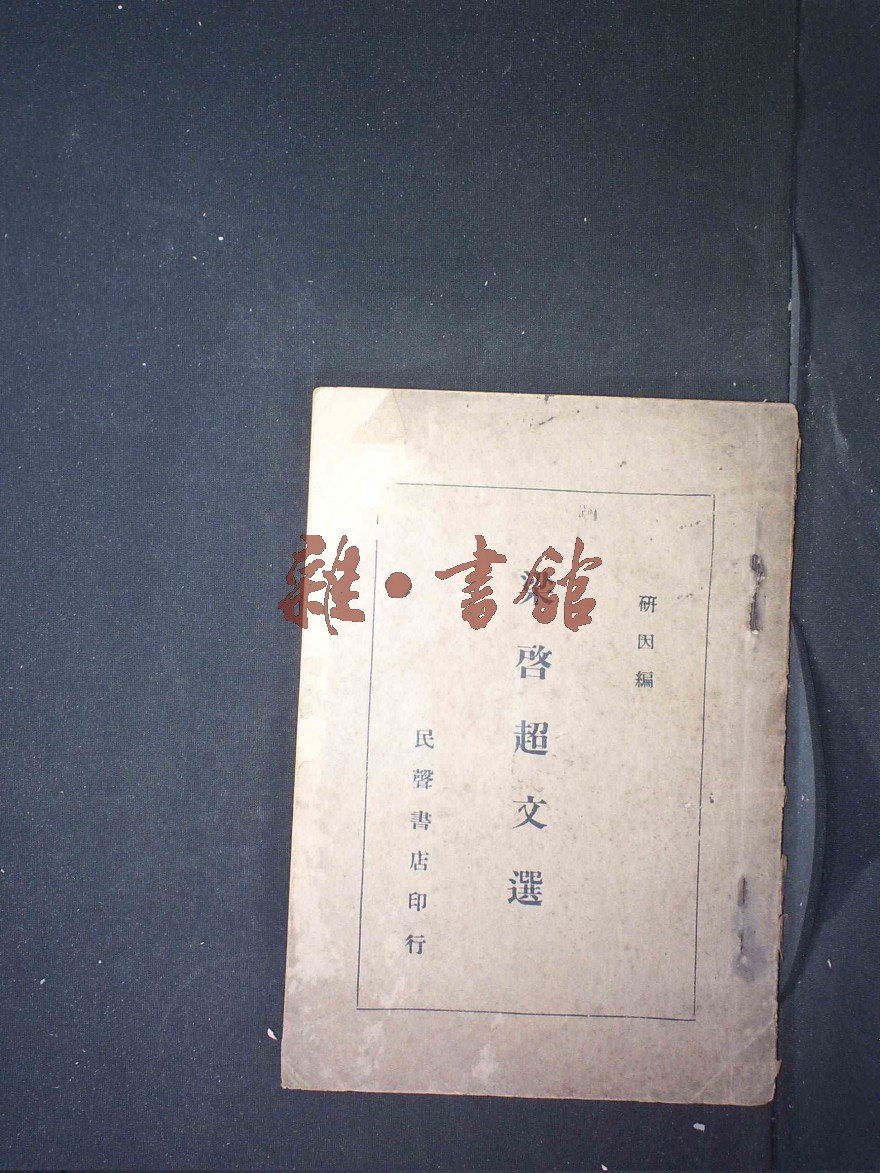 研因編
梁啓超文選
民聲書店印行
雜·書館